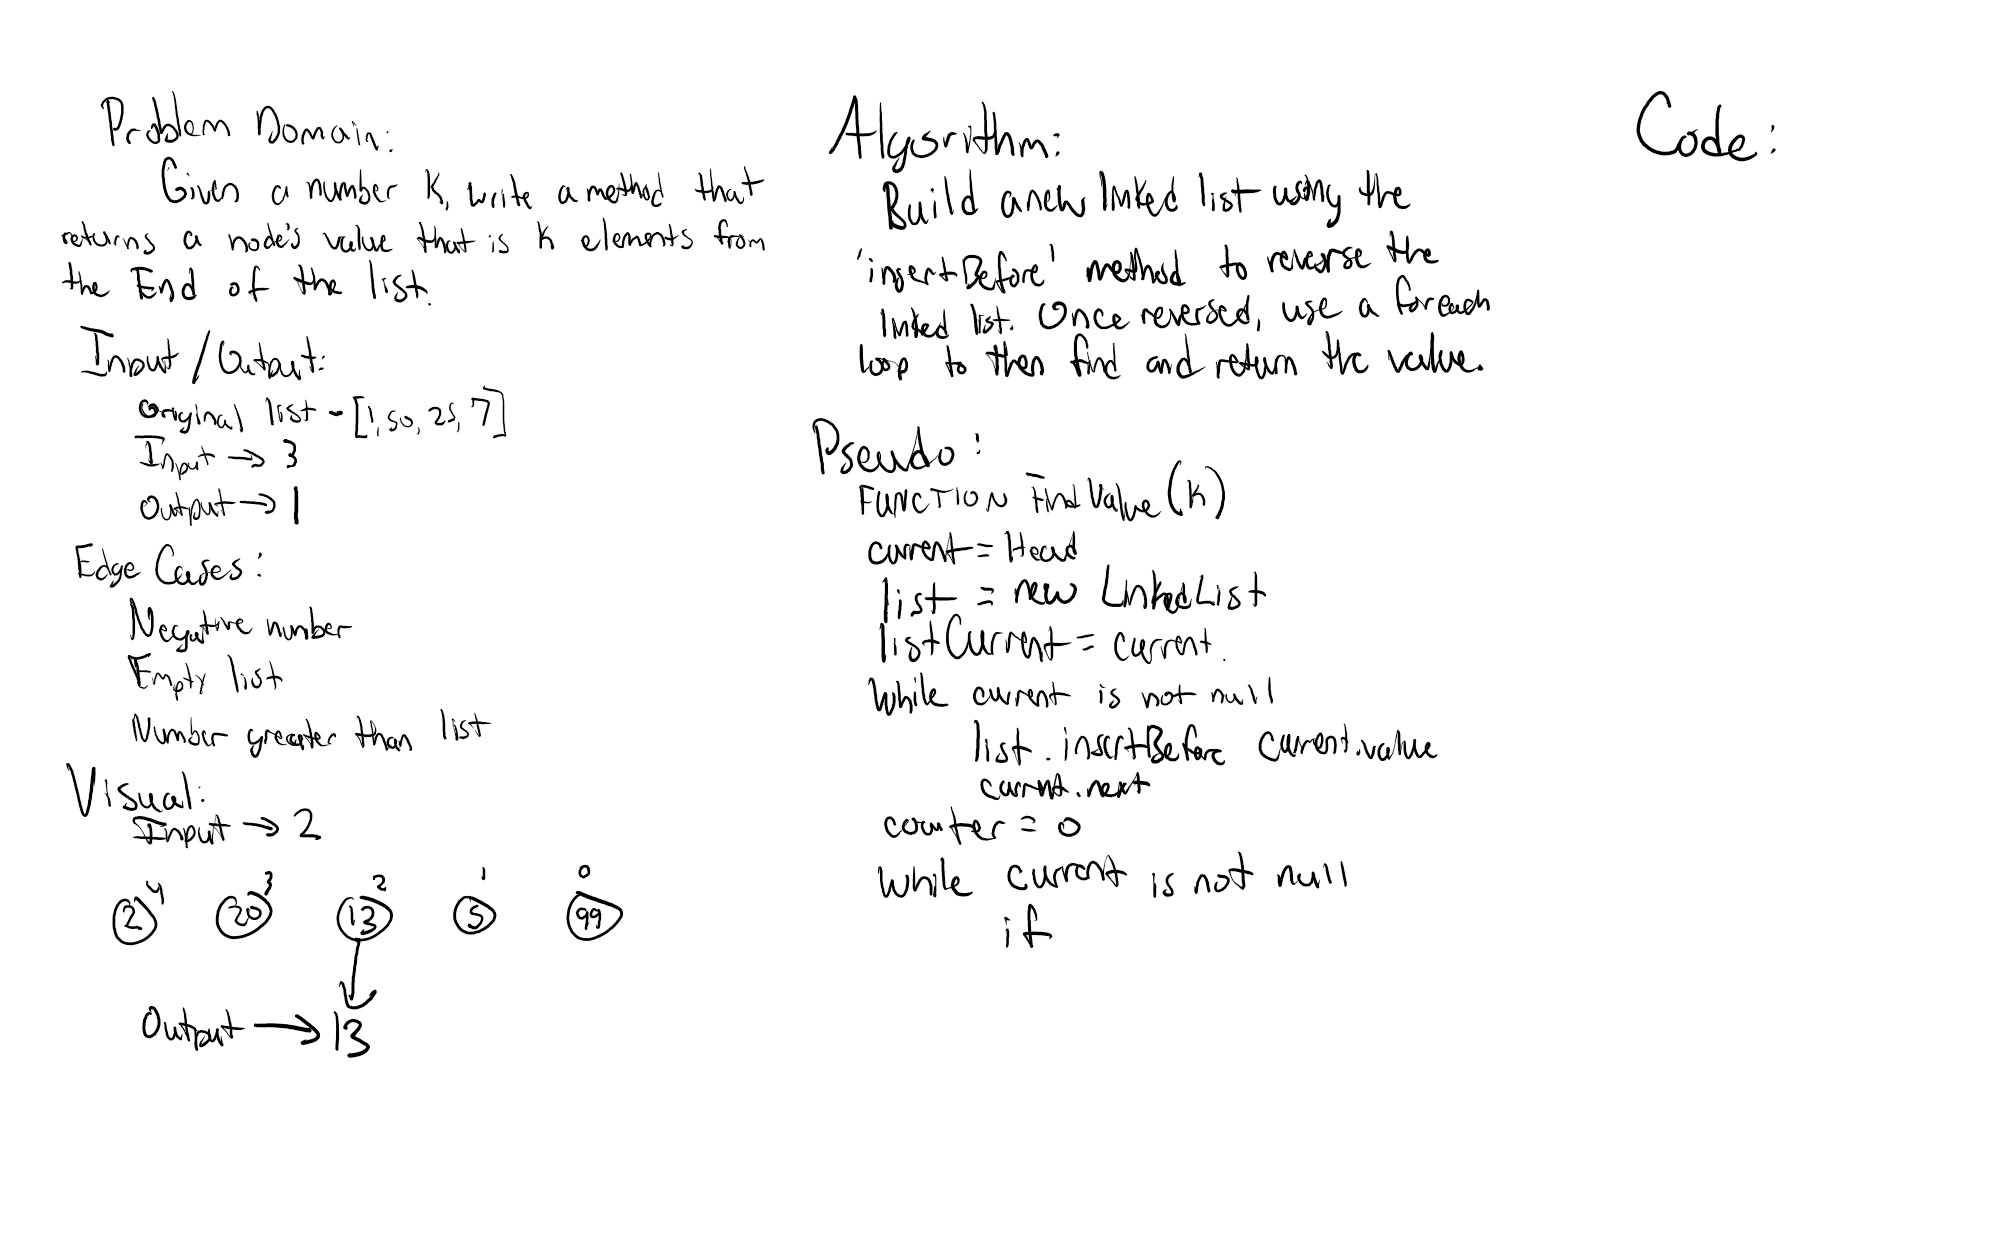 Problem Domain:
Given a number K, write a method that
returns a node's value that is K elements from
the End of the list.
Input / Output:
Original list - [1, 50, 25, 7]
Input → 3
Output → 1
Edge Cases:
Negative number
Empty list
Number greater than list
Visual:
Input → 2
4 3 2 1 0
2 20 13 5 99
Output → 13
Algorithm:
Build a new linked list using the
'insertBefore' method to reverse the
linked list. Once reversed, use a foreach
loop to then find and return the value.
Pseudo:
FUNCTION FindValue(K)
current = Head
list = new LinkedList
listCurrent = current.
While current is not null
list.insertBefore current.value
current.next
counter = 0
While current is not null
if
Code: